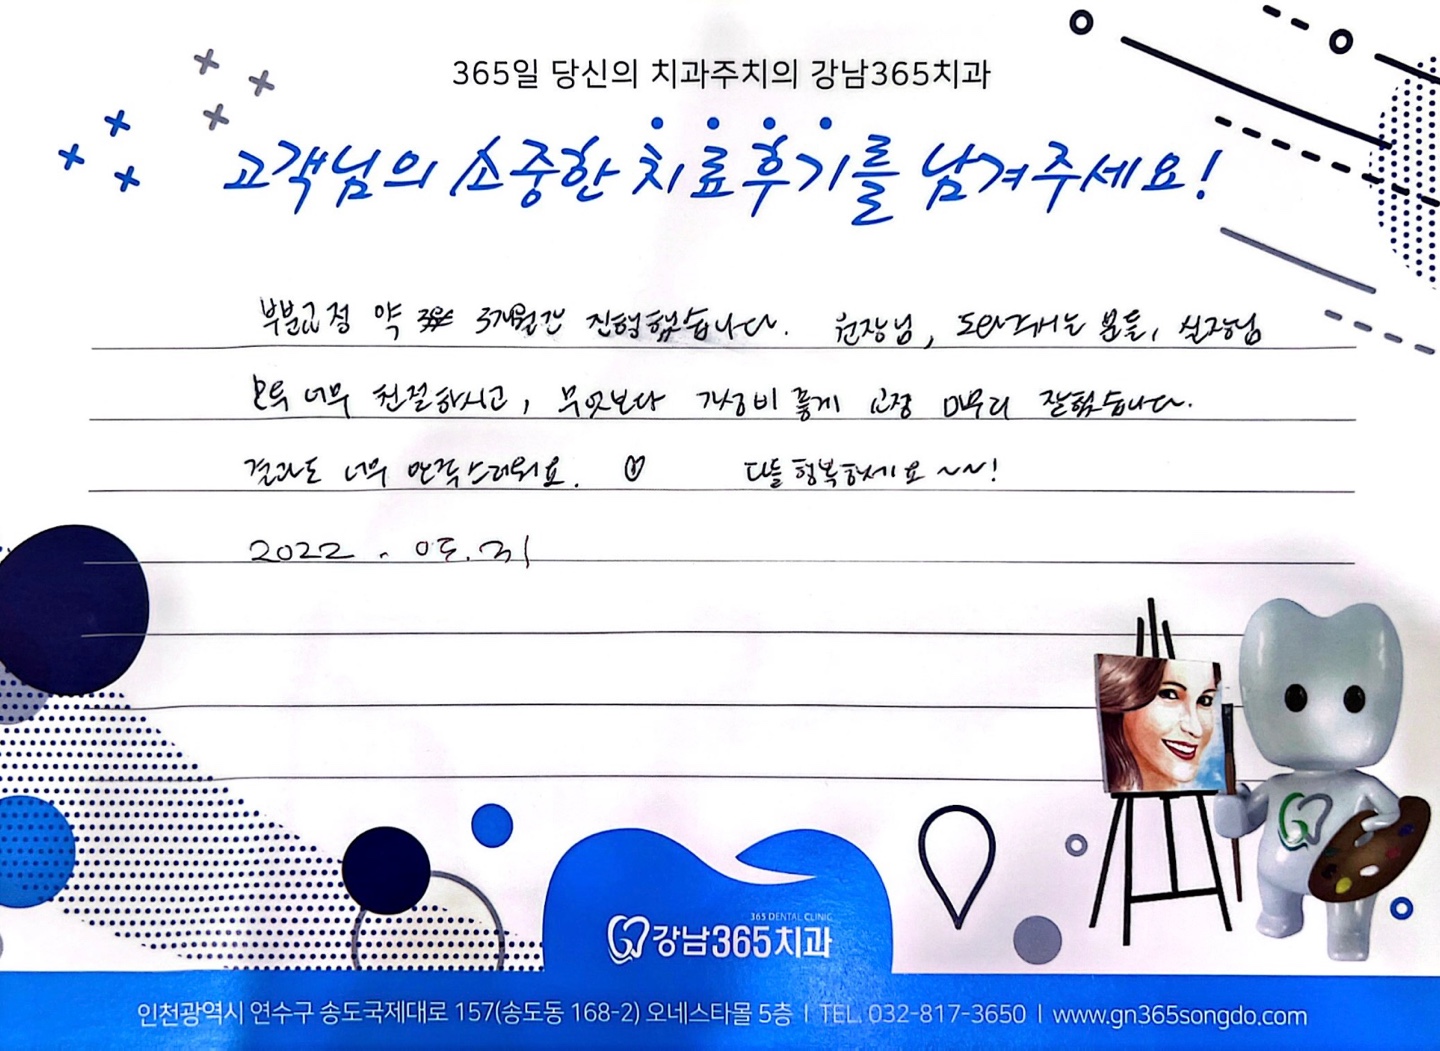 365일 당신의 치과주치의 강남365치과
고객님의 소중한 치료후기를 남겨주세요!
부분교정 약 3개월간 진행했습니다. 원장님, 도와주시는 분들, 실장님
모두 너무 친절하시고, 무엇보다 가성비 좋게 교정 마무리 잘했습니다.
결과도 너무 만족스러워요. ♡ 다들 행복하세요 ~~!
2022 . 05. 31
365 DENTAL CLINIC
강남365치과
인천광역시 연수구 송도국제대로 157(송도동 168-2) 오네스타몰 5층 | TEL. 032-817-3650 | www.gn365songdo.com